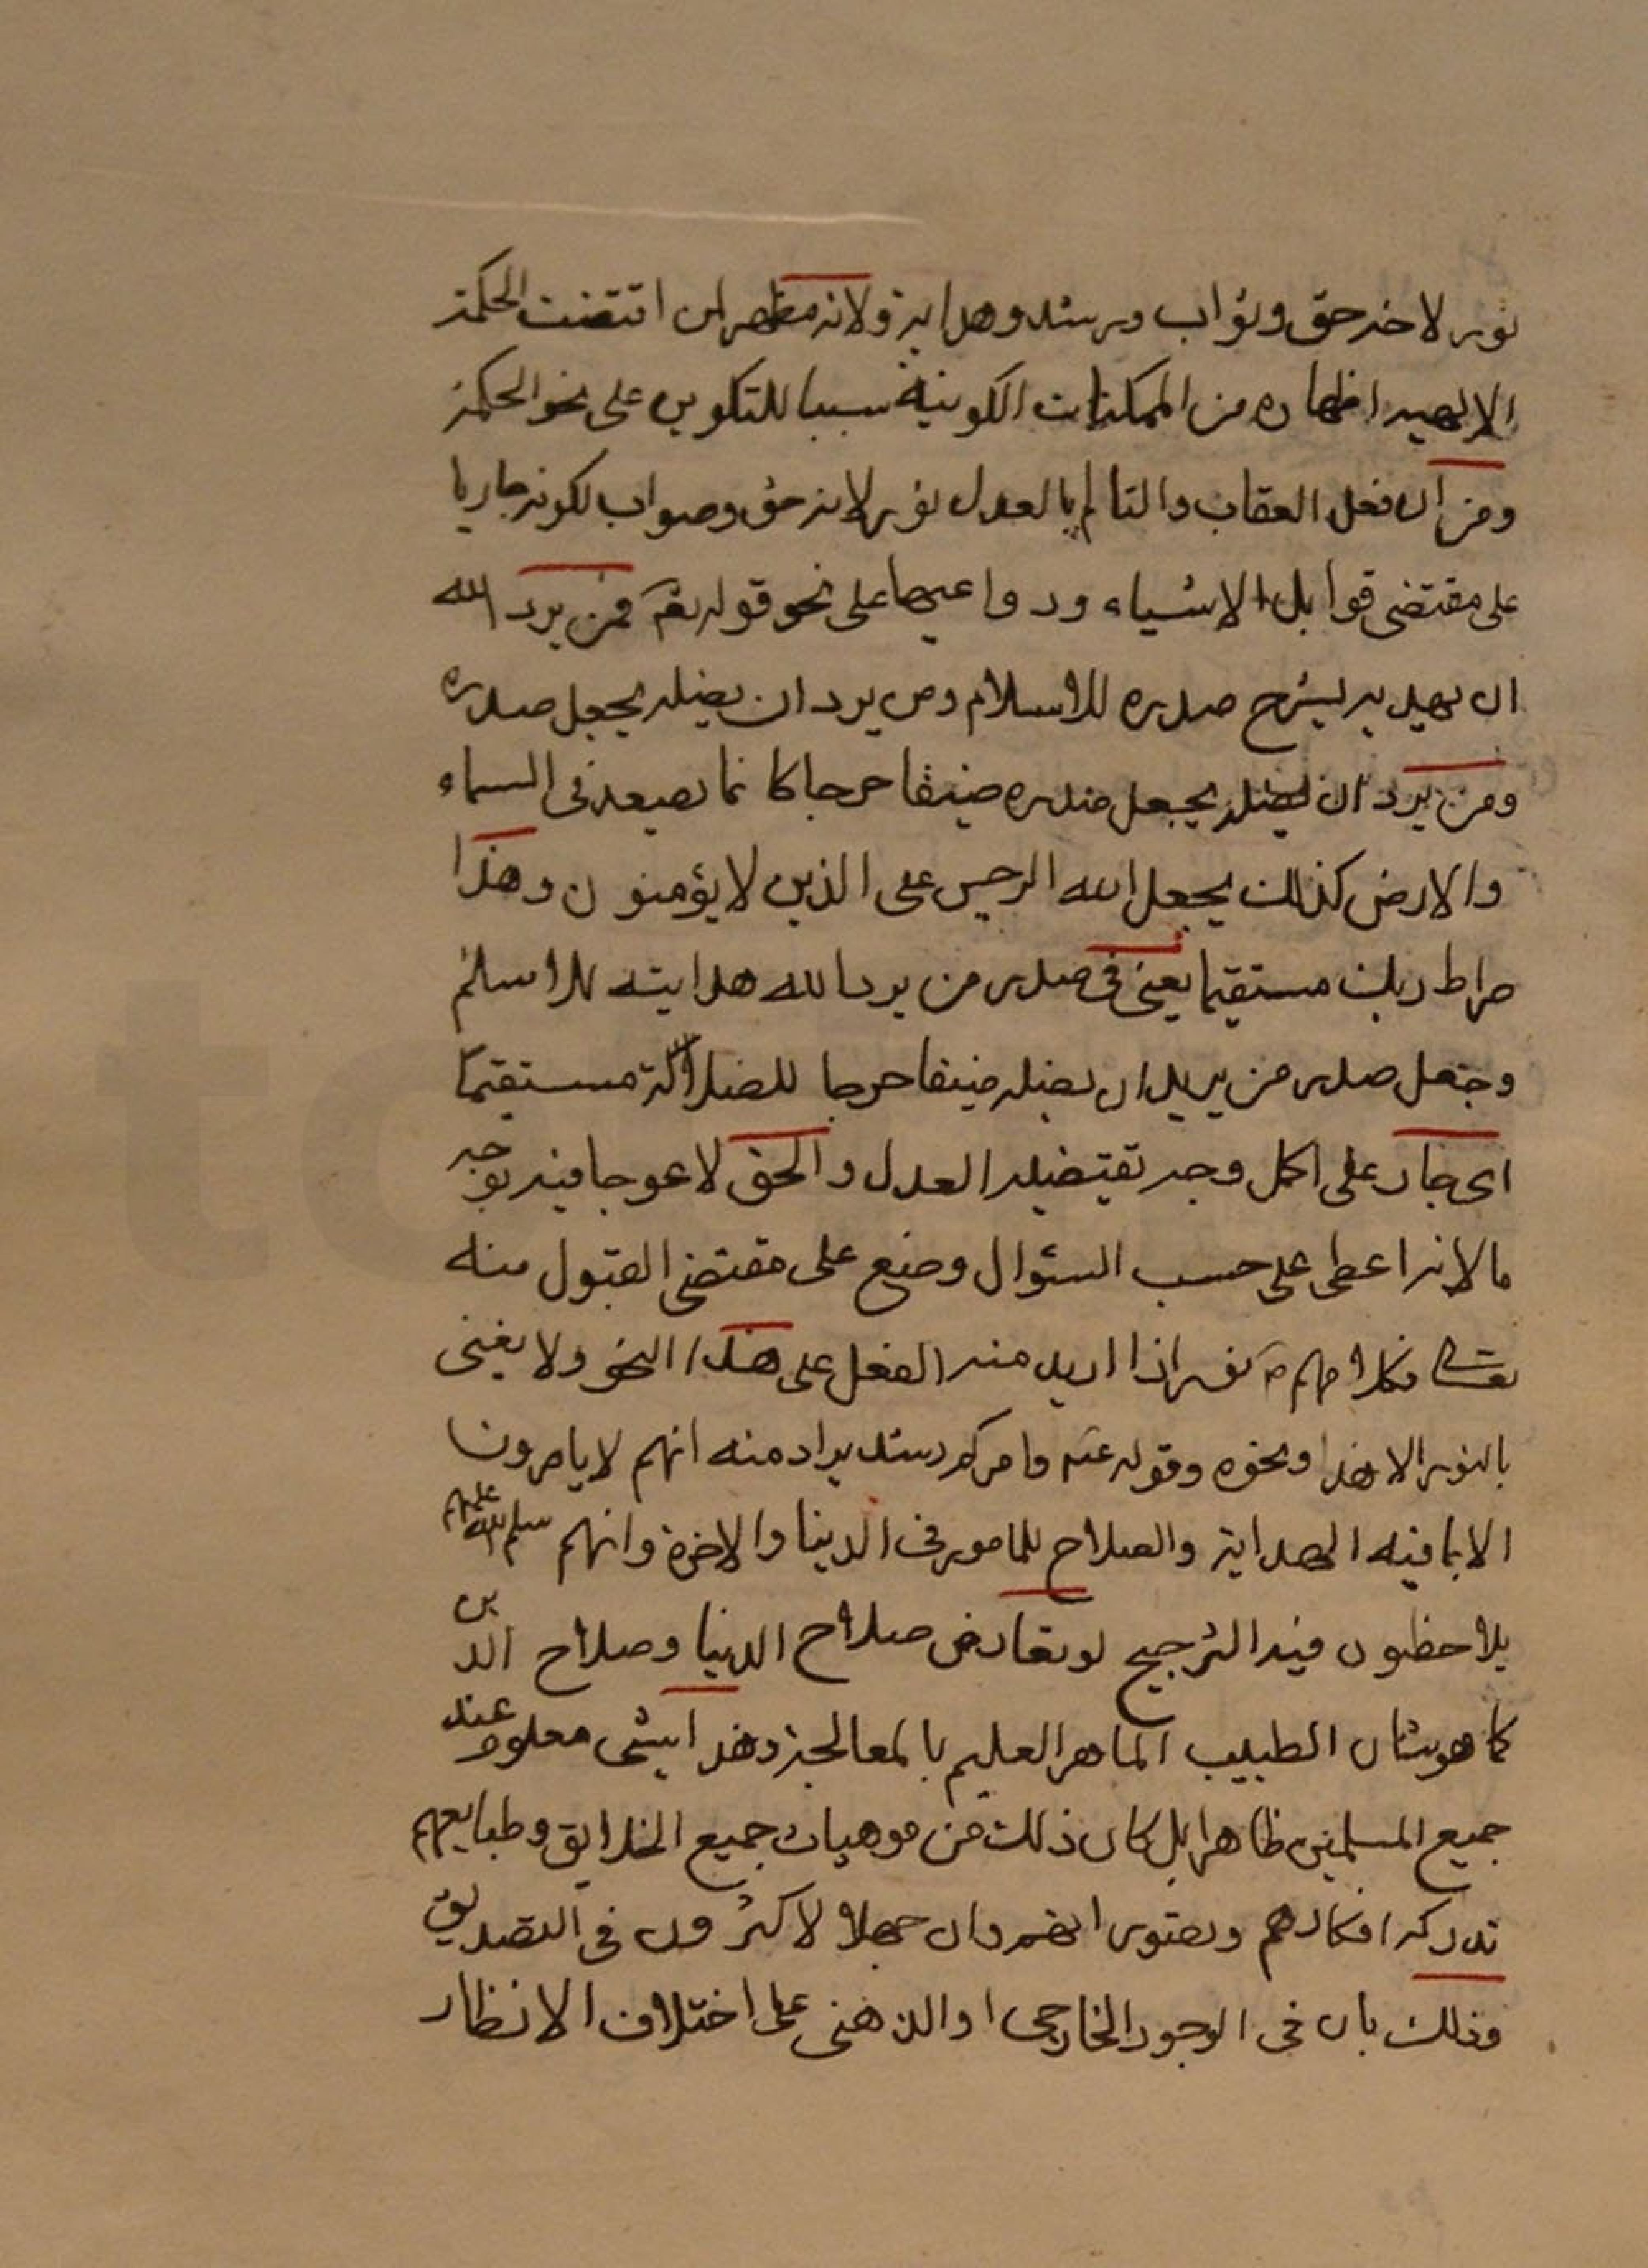 نور لانه حق وثواب ورشد وهداية ولانه مظهر لمن اقتضت الحكمة
الإلهية اظهاره من الممكنات الكونية سببا للتكوين على نحو الحكمة
ومن ان فعل العقاب والتالم بالعدل نور لانه حق وصواب لكونه جاريا
على مقتضى قوابل الاشياء ودواعيها على نحو قوله تعم فمن يرد الله
ان يهديه يشرح صدره للاسلام ومن يرد ان يضله يجعل صدره
ومن يرد ان يضله يجعل صدره ضيقا حرجا كانما يصعد فى السماء
والارض كذلك يجعل الله الرجس على الذين لا يؤمنون وهذا
صراط ربك مستقيما يعنى فى صدر من يرد الله هدايته للاسلم
وجعل صدر من يريد ان يضله ضيقا حرجا للضلالة مستقيما
اى جار على اكمل وجه تقتضيه العدل والحق لا عوجا فيه بوجه
ما لانه اعطى على حسب السئوال وصنع على مقتضى القبول منه
تعالى فكلامهم نور اذا اريد منه الفعل على هذا النحو ولا يغنى
بالنور الا هذا ونحوه وقوله وامركم رشد يراد منه انهم لا يامرون
الا بما فيه الهداية والصلاح للمامور فى الدنيا والاخرة وانهم سلم الله عليهم
يلاحظون فيه الترجيح لو تعارض صلاح الدنيا وصلاح الدين
كما هو شان الطبيب الماهر العليم بالمعالجة وهذا شى معلوم عند
جميع المسلمين ظاهرا بل كان ذلك من موهبات جميع الخلايق وطبايعهم
تدركه افكارهم وان جهلا لاكثرون فى التصديق
وذلك بان فى الوجود الخارجى او الذهنى على اختلاف الانظار